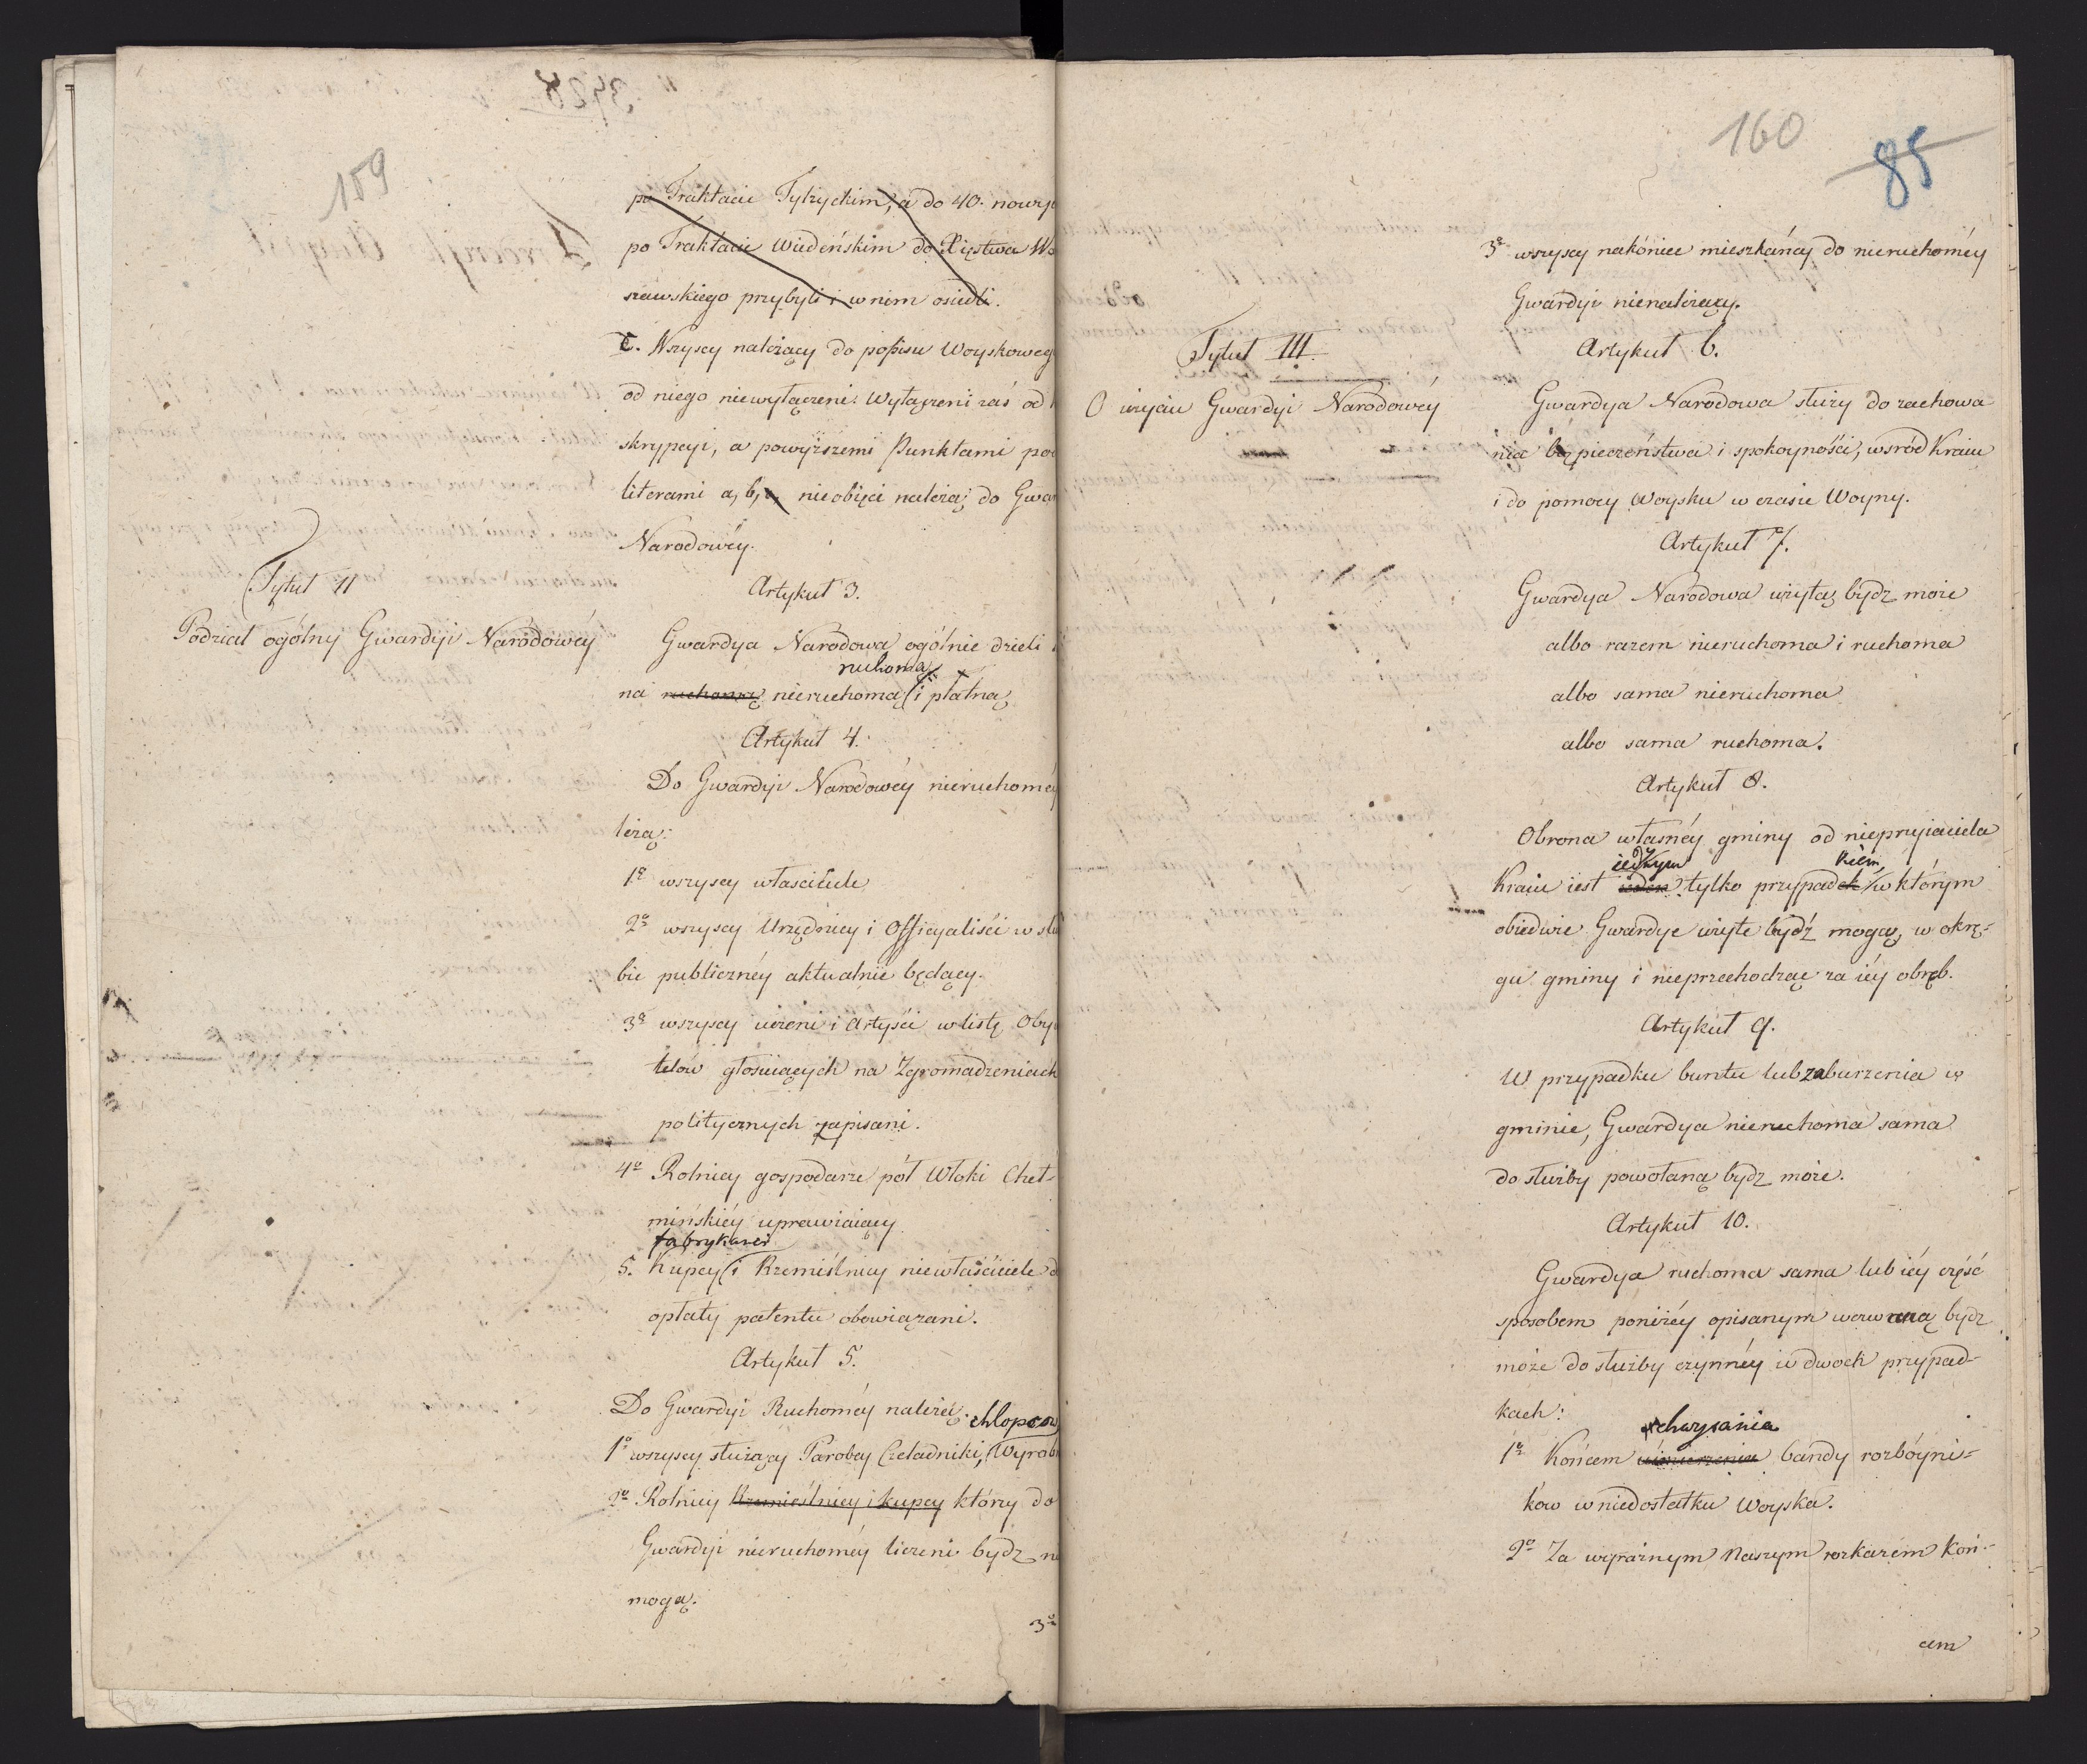 159
po Traktacie Tylżyckim, a do 40. nowo
po Traktacie Wiedeńskim do Xięstwa Wa
szawskiego przybyli i w nim osiedli.
C. Wszyscy należący do popisu Woyskoweg
od niego niewyłączeni. Wyłączeni zaś od
skrypcyi, a powyższemi Punktami pod
literami a, b, c, nieobięci należą do Gwar
Narodowéy.
Tytuł II
Artykuł 3.
Podział ogólny Gwardyi Narodowéy
Gwardya Narodowa ogólnie dzieli
ruchomą
na ruchomą nieruchomą i płatną
Artykuł 4.
Do Gwardyi Narodowéy nieruchoméy
leżą:
1o wszyscy właściciele
2o wszyscy Urzędnicy i Officyaliści w słu
bie publicznéy aktualnie będący.
3o wszyscy uczeni i Artyści w listę Oby
telów głosuiących na Zgromadzeniach
politycznych zapisani.
4o Rolnicy gospodarze pół Włoki Cheł-
mińskiéy uprawiaiący
fabrykanci
5. Kupcy i Rzemieślnicy niewłaściciele d
opłaty patentu obowiązani.
Artykuł 5.
Do Gwardyi Ruchoméy należą:
chłopcow
1o wszyscy służący Parobcy Czeladniki, Wyrob
2o Rolnicy Rzemieślnicy i kupcy którzy do
Gwardyi nieruchoméy liczeni bydz n
mogą.
3o
160
85
3o wszyscy nakóniec mieszkańcy do nieruchoméy
Gwardyi nienależący.
Tytuł III.
Artykuł 6.
O użyciu Gwardyi Narodowéy
Gwardya Narodowa służy do zachowa
nia bezpieczeństwa i spokoyności, wsród Kraiu
i do pomocy Woysku w czasie Woyny.
Artykuł 7.
Gwardya Narodowa użytą bydz może
albo razem nieruchoma i ruchoma
albo sama nieruchoma
albo sama ruchoma.
Artykuł 8.
Obrona własnéy gminy od nieprzyiaciela
iedynym kiem
Kraiu iest ieden tylko przypadek w którym
obiedwie Gwardye użyte bydź mogą, w okrę-
gu gminy i nieprzechodząc za iéy obręb.
Artykuł 9.
W przypadku buntu lub zaburzenia w
gminie, Gwardya nieruchoma sama
do służby powołaną bydz może.
Artykuł 10.
Gwardya ruchoma sama lub iéy część
sposobem poniżéy opisanym wezwaną bydz
może do służby czynnéy w dwoch przypad-
kach:
schwytania
1o Końcem uśmierzenia bandy rozbóyni-
ków w niedostatku Woyska.
2o Za wyraźnym Naszym rozkazem koń-
cem